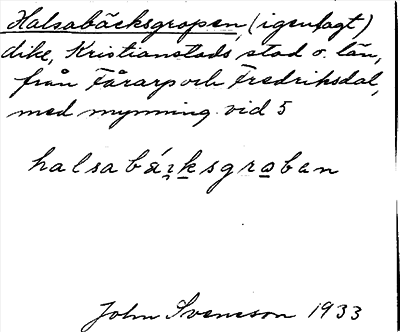 Halsabäcksgropen (igenlagt)
dike, Kristianstads stad o. län,
från Fårarp och Fredriksdal,
med mynning vid 5
halsabáɪ̯ksgrǝban
John Svensson 1933